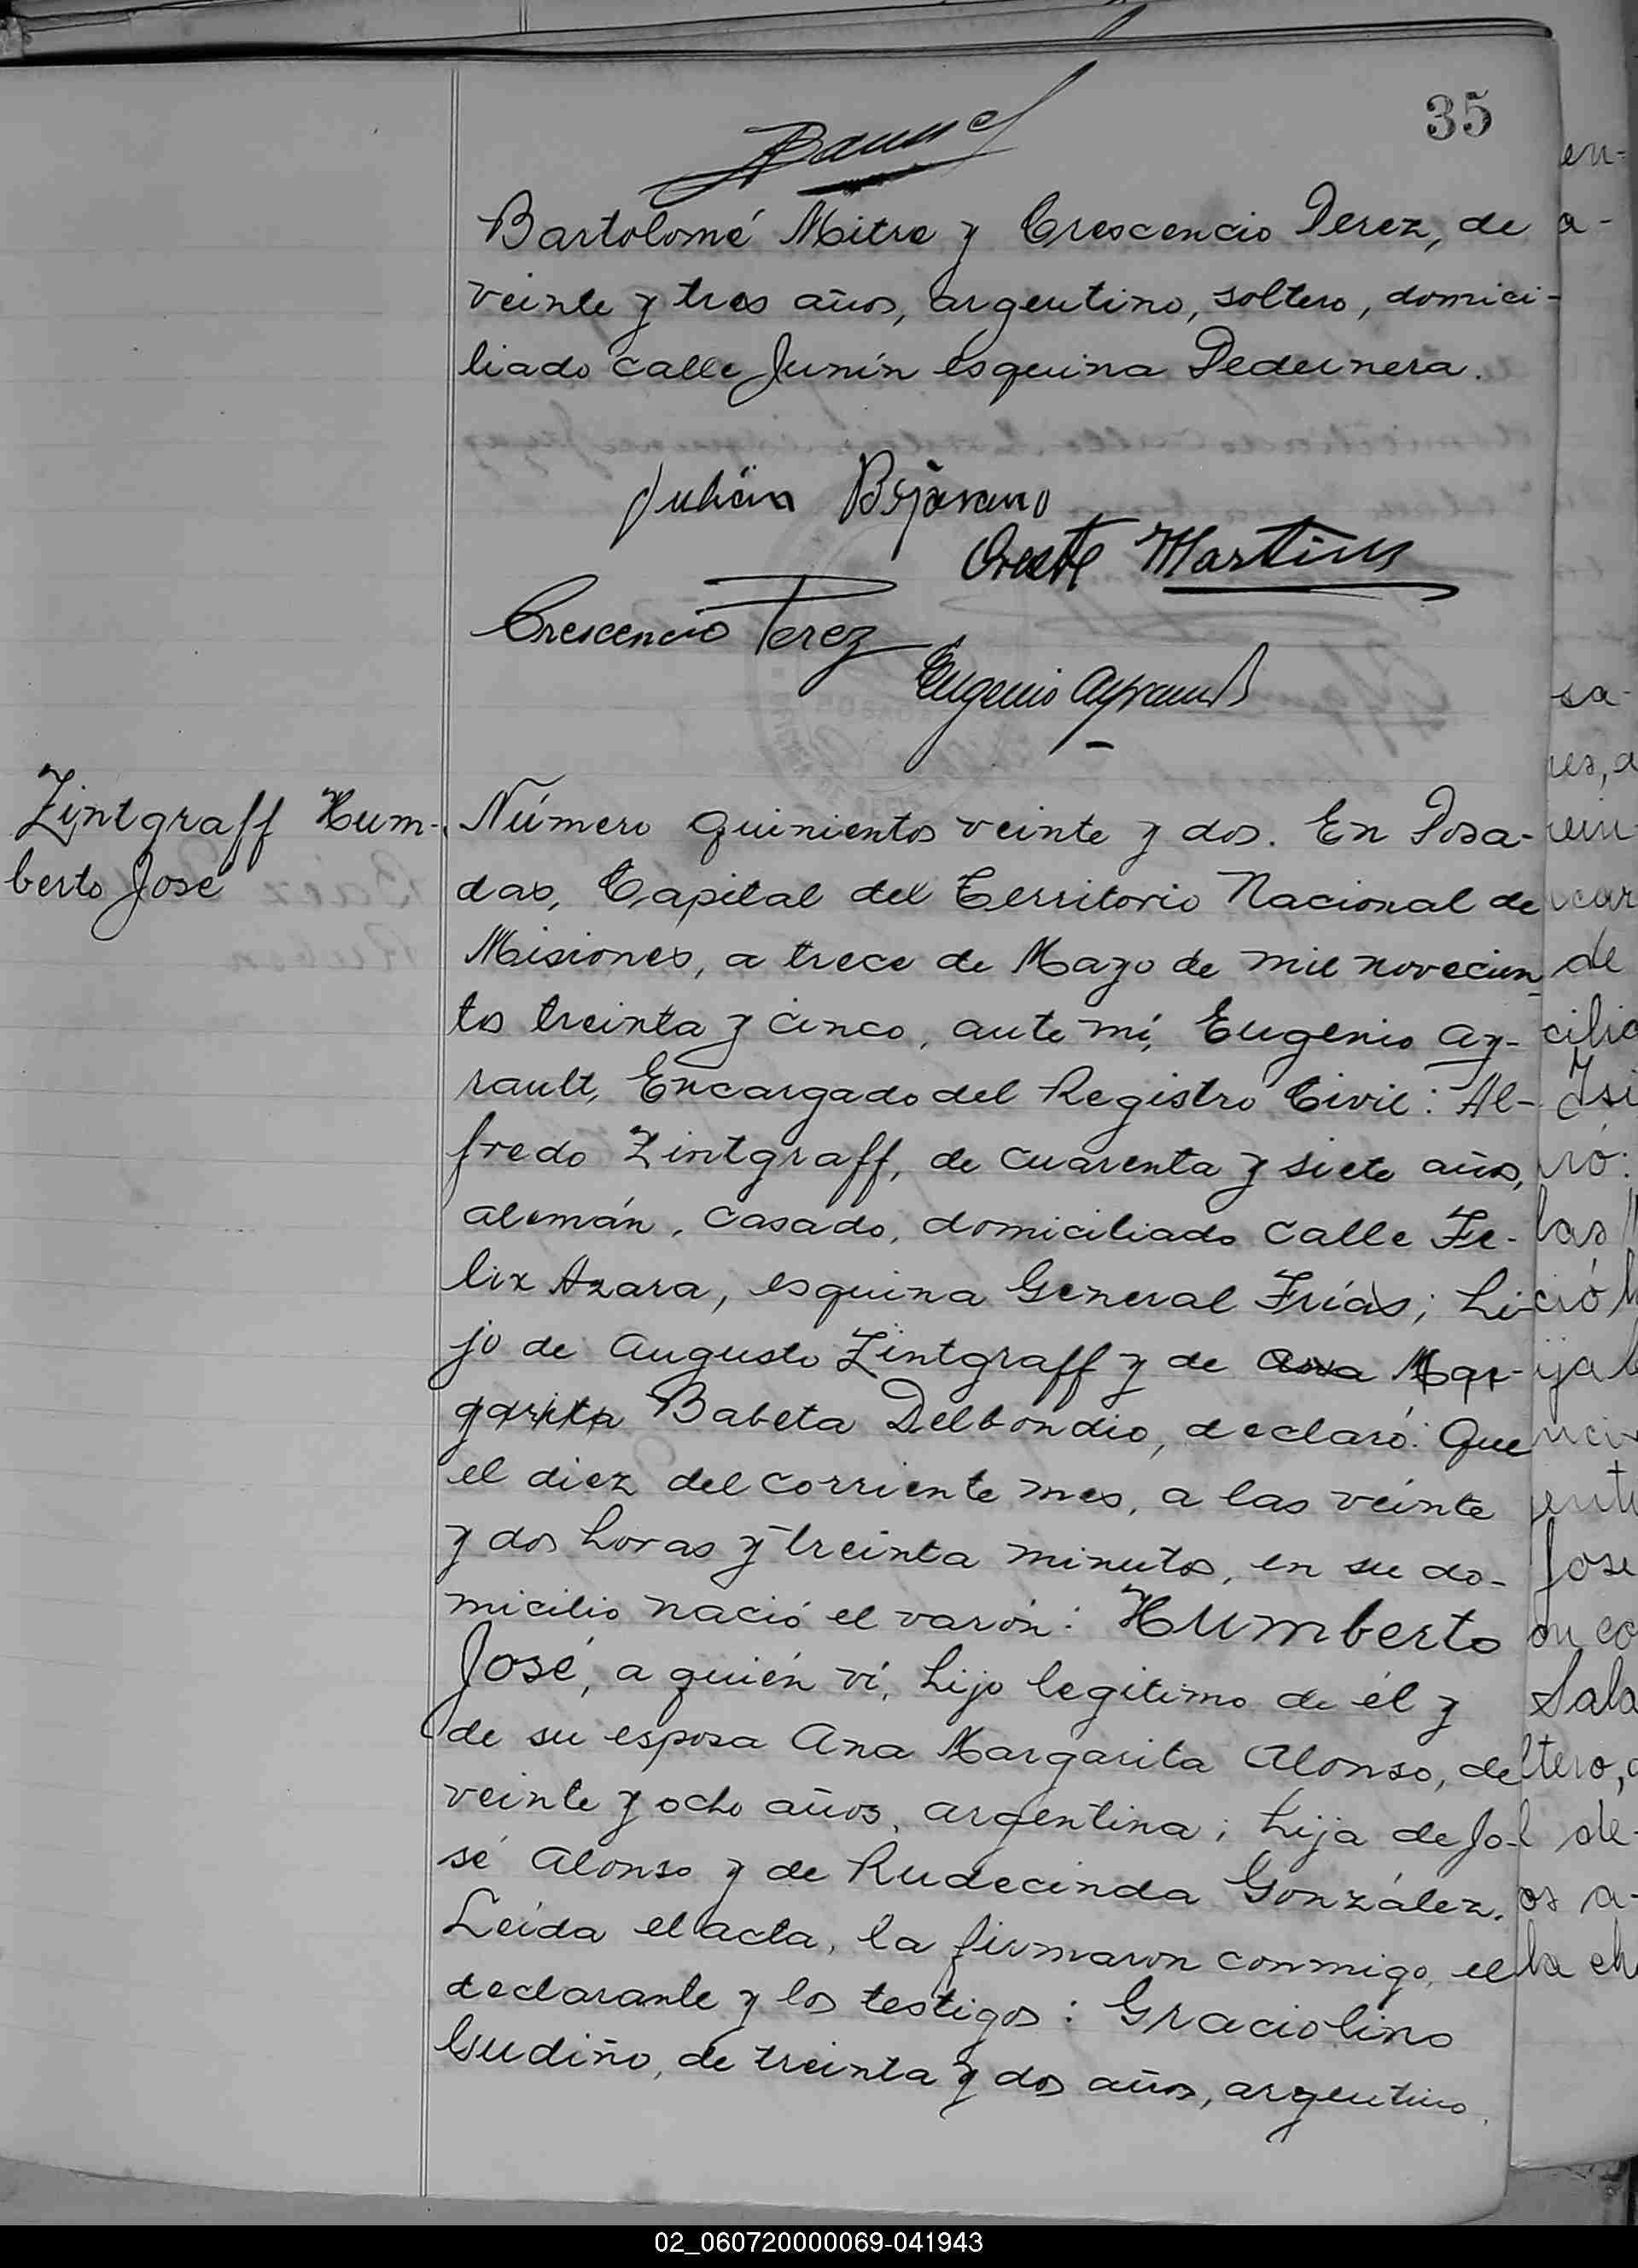 35
Bartolomé Mitre y Crescencio Perez, de
veinte y tres años, argentino, soltero, domici-
liado calle Junín esquina Pedernera.
Julián Bejarano
Oreste Martins
Crescencio Perez
Eugenio Ayrault
Zintgraff Hum-
berto José
Número quinientos veinte y dos. En Posa-
das, Capital del Territorio Nacional de
Misiones, a trece de Mayo de mil novecien
tos treinta y cinco, ante mí, Eugenio Ay-
rault, Encargado del Registro Civil: Al-
fredo Zintgraff, de cuarenta y siete años,
alemán, casado, domiciliado calle Fe-
lix Azara, esquina General Frías; hi-
jo de Augusto Zintgraff y de Ana Mar-
garita Babeta Delbondio, declaró: Que
el diez del corriente mes, a las veinte
y dos horas y treinta minutos, en su do-
micilio nació el varón: Humberto
José, a quién ví, hijo legitimo de él y
de su esposa Ana Margarita Alonso, de
veinte y ocho años, argentina; hija de Jo-
sé Alonso y de Rudecinda González.
Leída el acta, la firmaron conmigo, el
declarante y los testigos: Graciolino
Gudiño, de treinta y dos años, argentino,
02_060720000069-041943